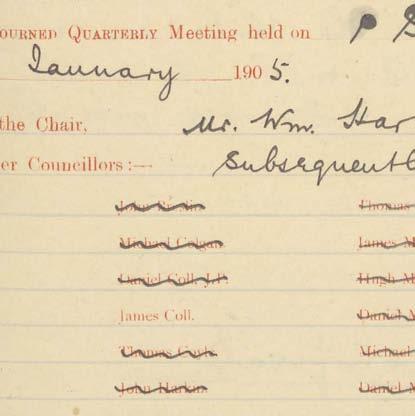 OURNED QUARTERLY Meeting held on
January 1905.
the Chair, Mr. Wm. Har
er Councillors:— Subsequently
Thomas
Michael Colgan. James M
Daniel Coll, J.P. Hugh M
James Coll. Daniel M
Michael
John Harkin. Daniel M